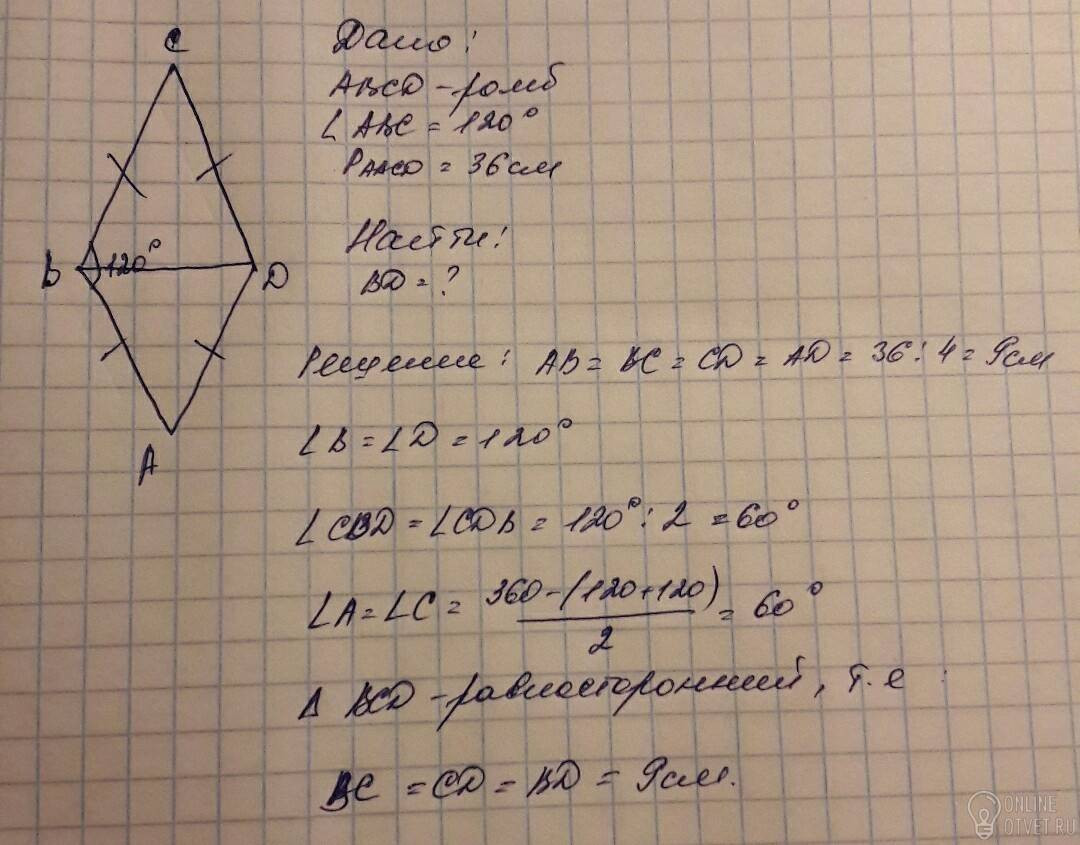 C
Дано:
ABCD - ромб
∠ABC = 120°
P_ABCD = 36 см
Найти:
B 120° D
BD = ?
Решение: AB = BC = CD = AD = 36 : 4 = 9 см
∠B = ∠D = 120°
A
∠CBD = ∠CDB = 120° : 2 = 60°
∠A = ∠C = 360-(120+120) / 2 = 60°
Δ BCD - равносторонний, т.е :
BC = CD = BD = 9 см.
ONLINE
OTVET.RU